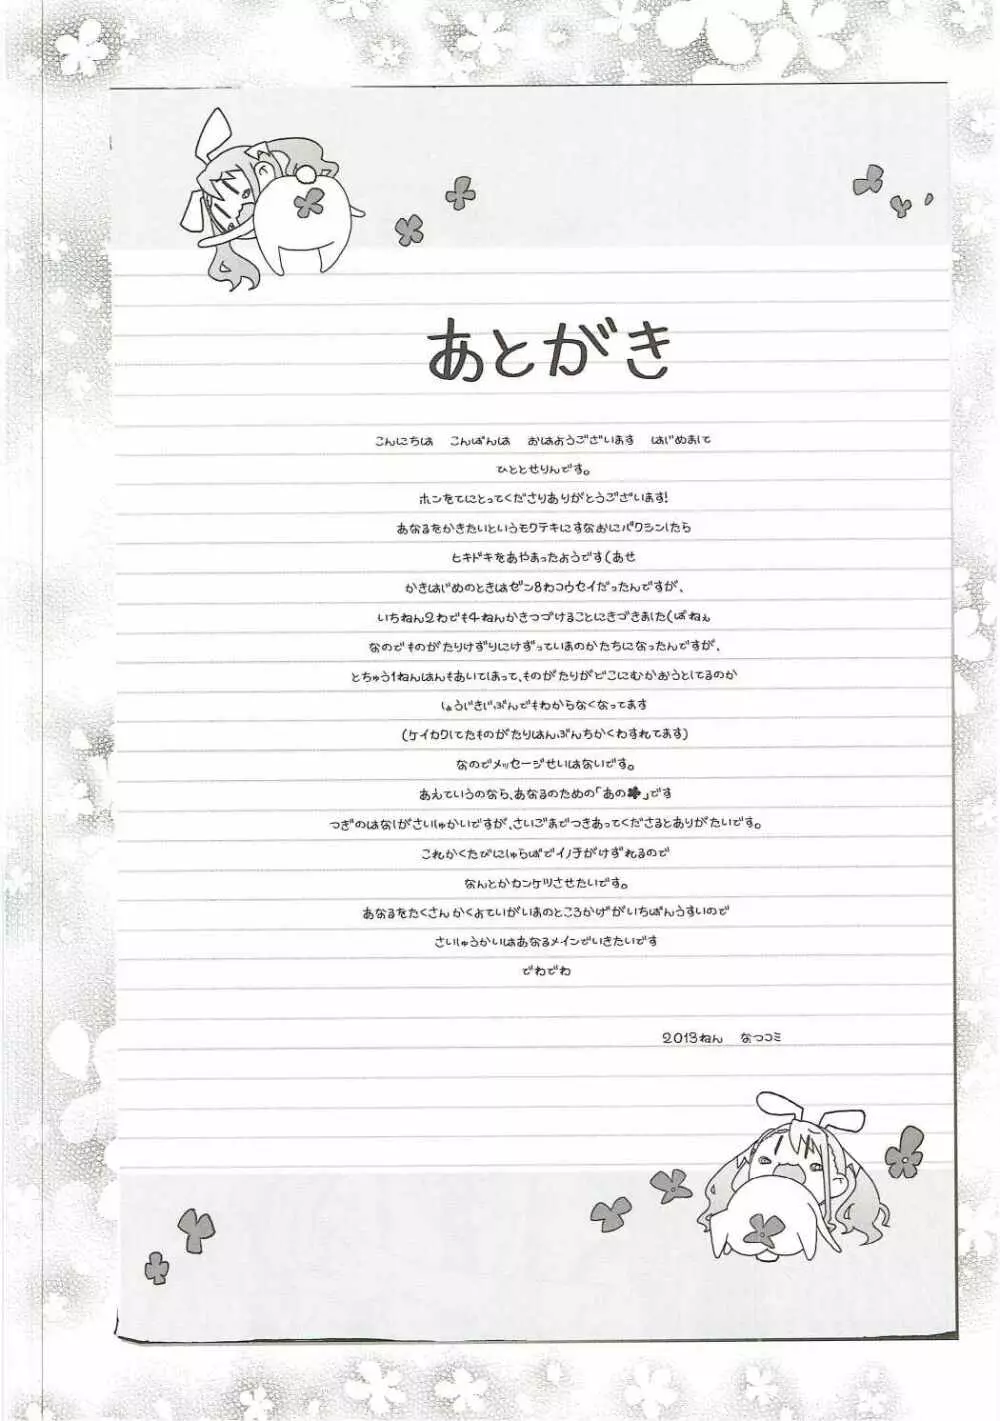 あとがき
こんにちは　こんばんは　おはようございます　はじめまして
ひととせりんです。
ホンをてにとってくださりありがとうございます!
あなるをかきたいというモクテキにすなおにバクシンしたら
ヒキドキをあやまったようです(あせ
かきはじめのときはゼン8わコウセイだったんですが、
いちねん2わでも4ねんかきつづけることにきづきました(ばねぇ
なのでものがたりけずりにけずっていまのかたちになったんですが、
とちゅう1ねんはんもあいてしまって、ものがたりがどこにむかおうとしてるのか
しょうじきじぶんでもわからなくなってます
(ケイカクしてたものがたりはんぶんちかくわすれてます)
なのでメッセージせいはないです。
あえていうのなら、あなるのための「あの♣」です
つぎのはなしがさいしゅかいですが、さいごまでつきあってくださるとありがたいです。
これかくたびにしゅらばでイノチがけずれるので
なんとかカンケツさせたいです。
あなるをたくさん かくよていがいまのところかげがいちばんうすいので
さいしゅうかいはあなるメインでいきたいです
でわでわ
2013ねん　なつコミ